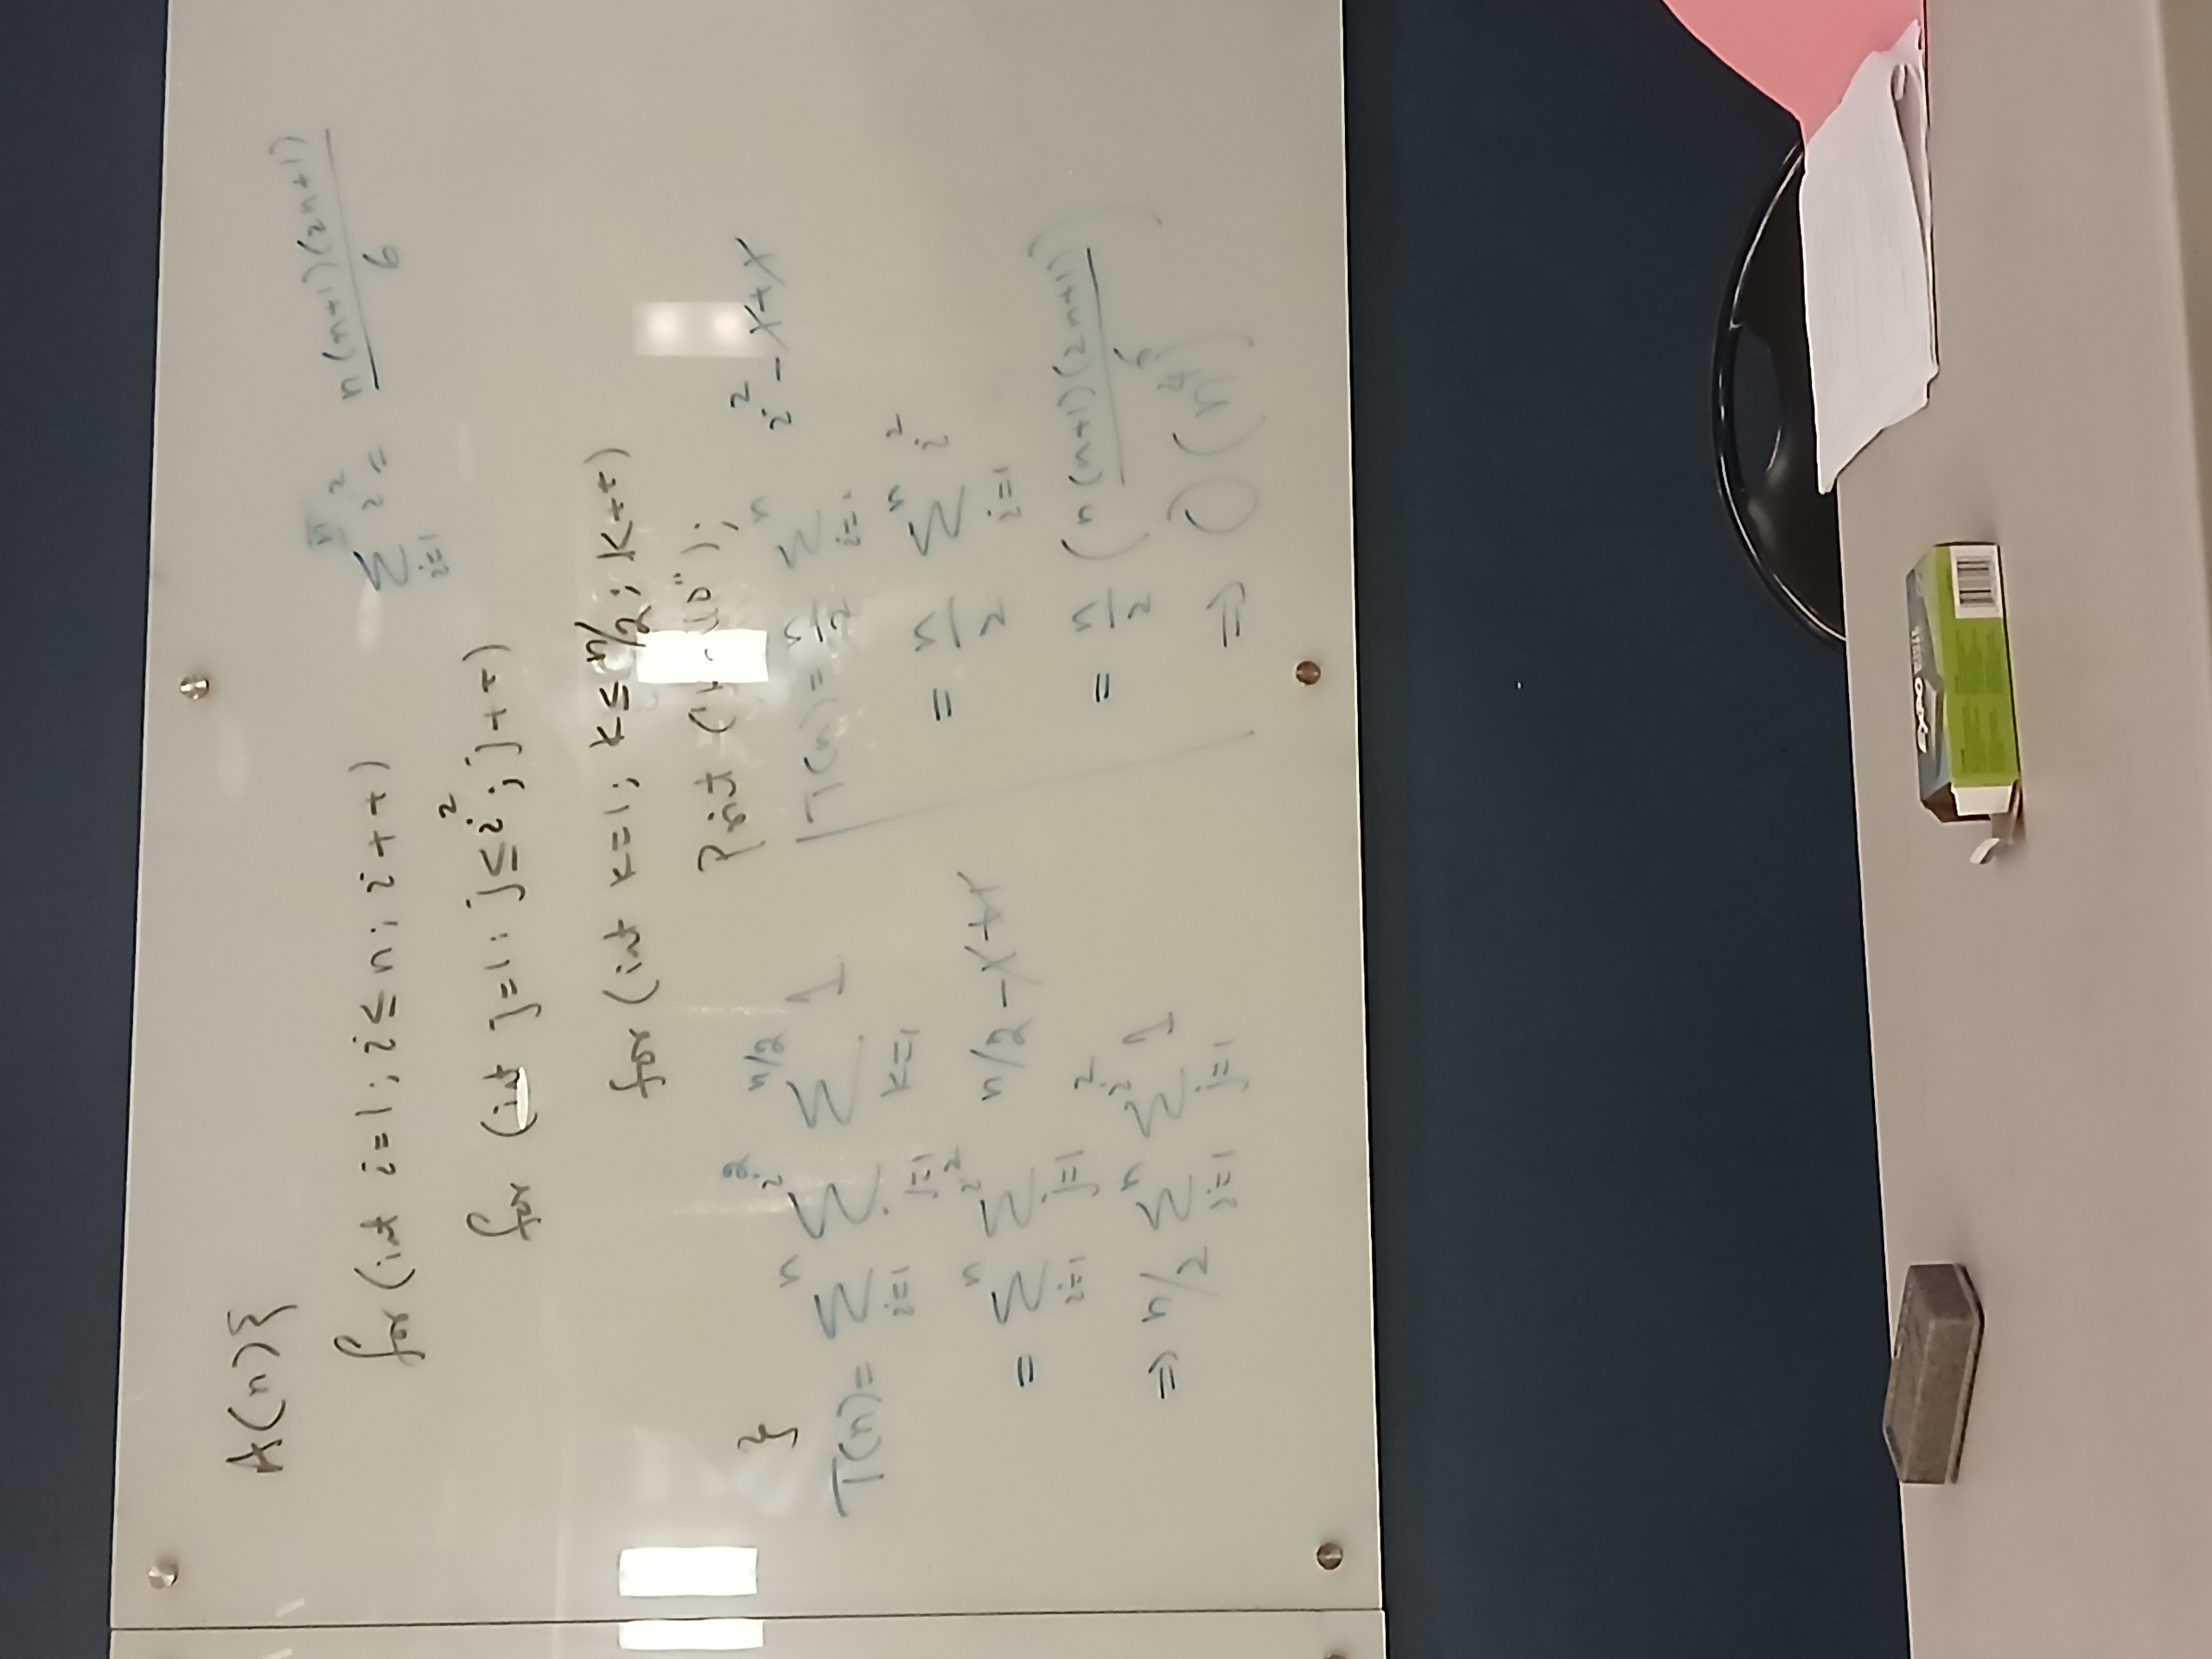 A(n){
for(int i=1; i≤n; i++)
for (int j=1; j≤i²; j++)
for (int k=1; k≤n/2; k++)
Print (
}
∑_{i=1}^{n} i² = n(n+1)(2n+1)/6
T(n)= ∑_{i=1}^{n} ∑_{j=1}^{i²} ∑_{k=1}^{n/2} 1
= ∑_{i=1}^{n} ∑_{j=1}^{i²} n/2 - 1 + 1
⇒ n/2 ∑_{i=1}^{n} ∑_{j=1}^{i²} 1
T(n)= n/2 ∑_{i=1}^{n} i² - 1 + 1
= n/2 ∑_{i=1}^{n} i²
= n/2 (n(n+1)(2n+1)/6)
⇒ O(n⁴)
EXPO